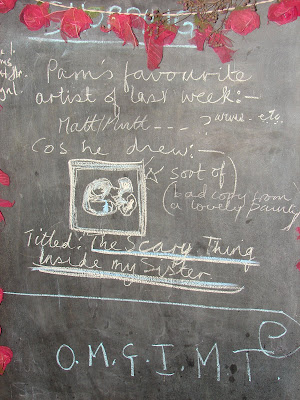 Pam's favourite
artist of last week:-
Matt
Cos he drew:-
sort of
(bad copy from
a lovely painty)
Titled: The Scary Thing
inside my Sister
O.M.G.I.M.T